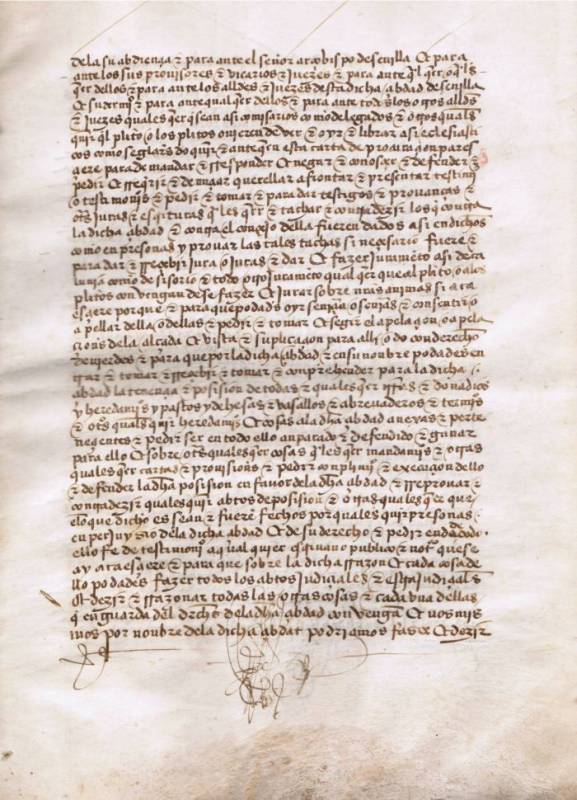 dela su abdiença & para ante el señor arçobispo de seuilla Et para
ante los sus prouisores & vicarios & juezes & para ante
qer dellos & para ante los alldes & juezes desta dicha abdad de seuilla
& para ante qual qer dellos & para ante todos los otros alldes
& juezes quales qer q sean asi comisarios como delegados & otros quales
quier pleito o los pleitos ouieren de ver & oyr & librar asi eclesiasti
cos como seglares do quier & ante quien esta carta de procuraçion pares
çiere para demandar & rresponder & negar & conosçer & defender &
pedir & rreqrir & querellar afrontar & presentar testimo
o testimonios & pedir & tomar & para dar testigos & prouanças &
otras & escrituras & tachar & contradezir los q contra
la dicha abdad & contra el conçejo della fueren dados asi en dichos
como en presonas y prouar las tales tachas si nesçesario fuere &
para dar & rresçebir jura o juras & dar & fazer juramento asi de ca
lunia como deçisorio & todo otro juramento qual qer que al plito o alos
plitos conuengan de se fazer & jurar sobre nras animas si aca
esçiere porque & para que podades oyr sentençia o sentençias & consentir o
apellar della o dellas & pedir & tomar & segir el apelaçion o apela
çiones dela alçada & vista & suplicaçion para alli do con derecho
deuierdes & para que por la dicha abdad & en su nombre podades en
trar & tomar & rresçebir & tomar & conprehender para la dicha
abdad la tenençia & posision de todas & quales qer & donadios
y heredamis y pastos y dehesas & vasallos & abreuaderos & termis
& otros quales quier heredamis & cosas ala dha abdad anexas & perte
neçientes & pedir ser en todo ello anparado & defendido & ganar
para ello & sobre otras quales quier cosas qles qer mandamis & otras
quales qer cartas & prouisiones & pedir conplimi & execuçion dello
& defender la dha posision en fauor dela dha abdad & rreprouar &
contradezir quales quier abtos de posision & otras quales qer
elo que dicho es sean & fueren fechos por quales quier presonas
en perjuyzio dela dicha abdad & de su derecho & pedir
ello fe de testimonio a qual quier escriuano publico & not que se
ay acaesçiere & para que sobre la dicha rrazon & cada cosa de
llo podades fazer todos los abtos judiçiales & estrajudiçiales
& dezir & rrazonar todas las otras cosas & cada vna dellas
q en guarda del derecho dela dha abdad conuengan & nos mis
mos por nonbre dela dicha abdat podriamos faser & dezir